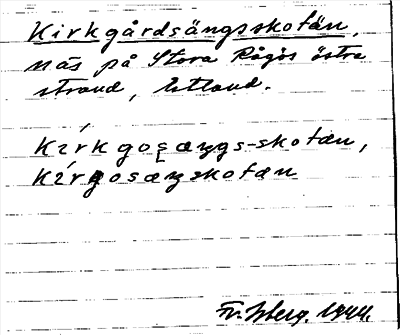 Kirkgårdsängsskotän,
näs på Stora Rågös östra
strand, Estland.
kírkgosæŋgs-skotæn,
kírgosæŋskotæn
Fr. Isberg. 1944.